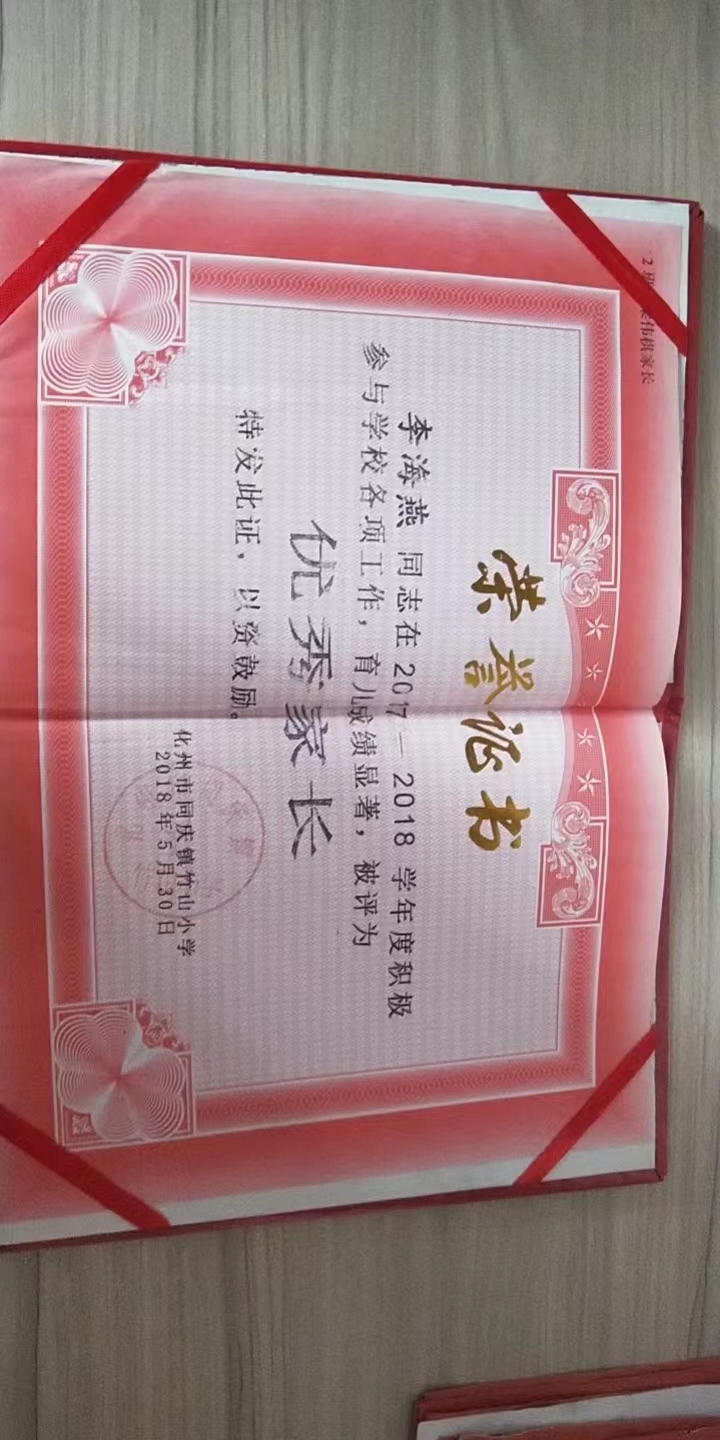 荣誉证书
李海燕 同志在 2017—2018 学年度积极
参与学校各项工作，育儿成绩显著，被评为
优秀家长
特发此证，以资鼓励。
化州市同庆镇竹山小学
2018年5月30日